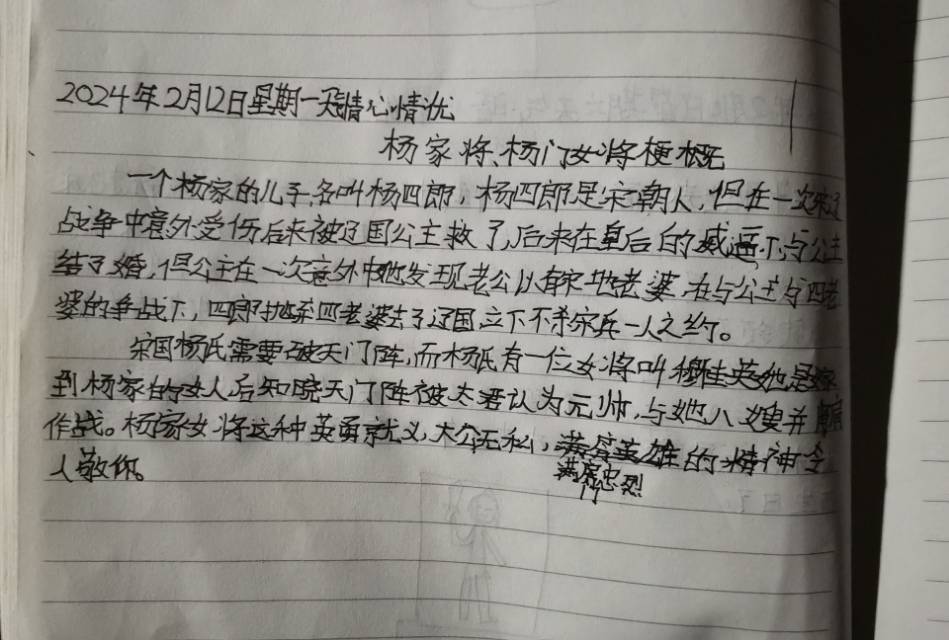 2024年2月12日星期一天晴心情优
杨家将、杨门女将梗概
一个杨家的儿子名叫杨四郎，杨四郎是宋朝人，但在一次宋辽
战争中意外受伤后来被辽国公主救了，后来在皇后的威逼下与公主
结了婚，但公主在一次意外中她发现老公以有宋地老婆，在与公主与四老
婆的争战下，四郎抛弃四老婆去了辽国，立下不杀宋兵一人之约。
宋国杨氏需要破天门阵，而杨氏有一位女将叫穆桂英她是嫁
到杨家的女人后知晓天门阵被太君认为元帅，与她八嫂并肩
作战。杨家女将这种英勇就义，大公无私，的精神令
满门忠烈
人敬仰。